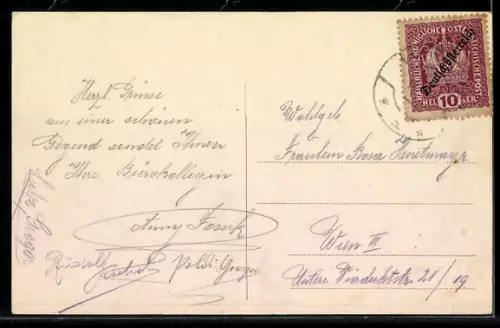 Herzl. Grüsse
aus einer schönen
Gegend sendet Ihnen
Ihre Bürokollegin
Anny
Rudolf
Poldi
Wohlgeb.
Fräulein Rosa
Wien III
Untere Viaduktstr. 21/19
KAISERLICHE KÖNIGLICHE ÖSTERREICHISCHE POST
Deutschösterreich
HELLER
10